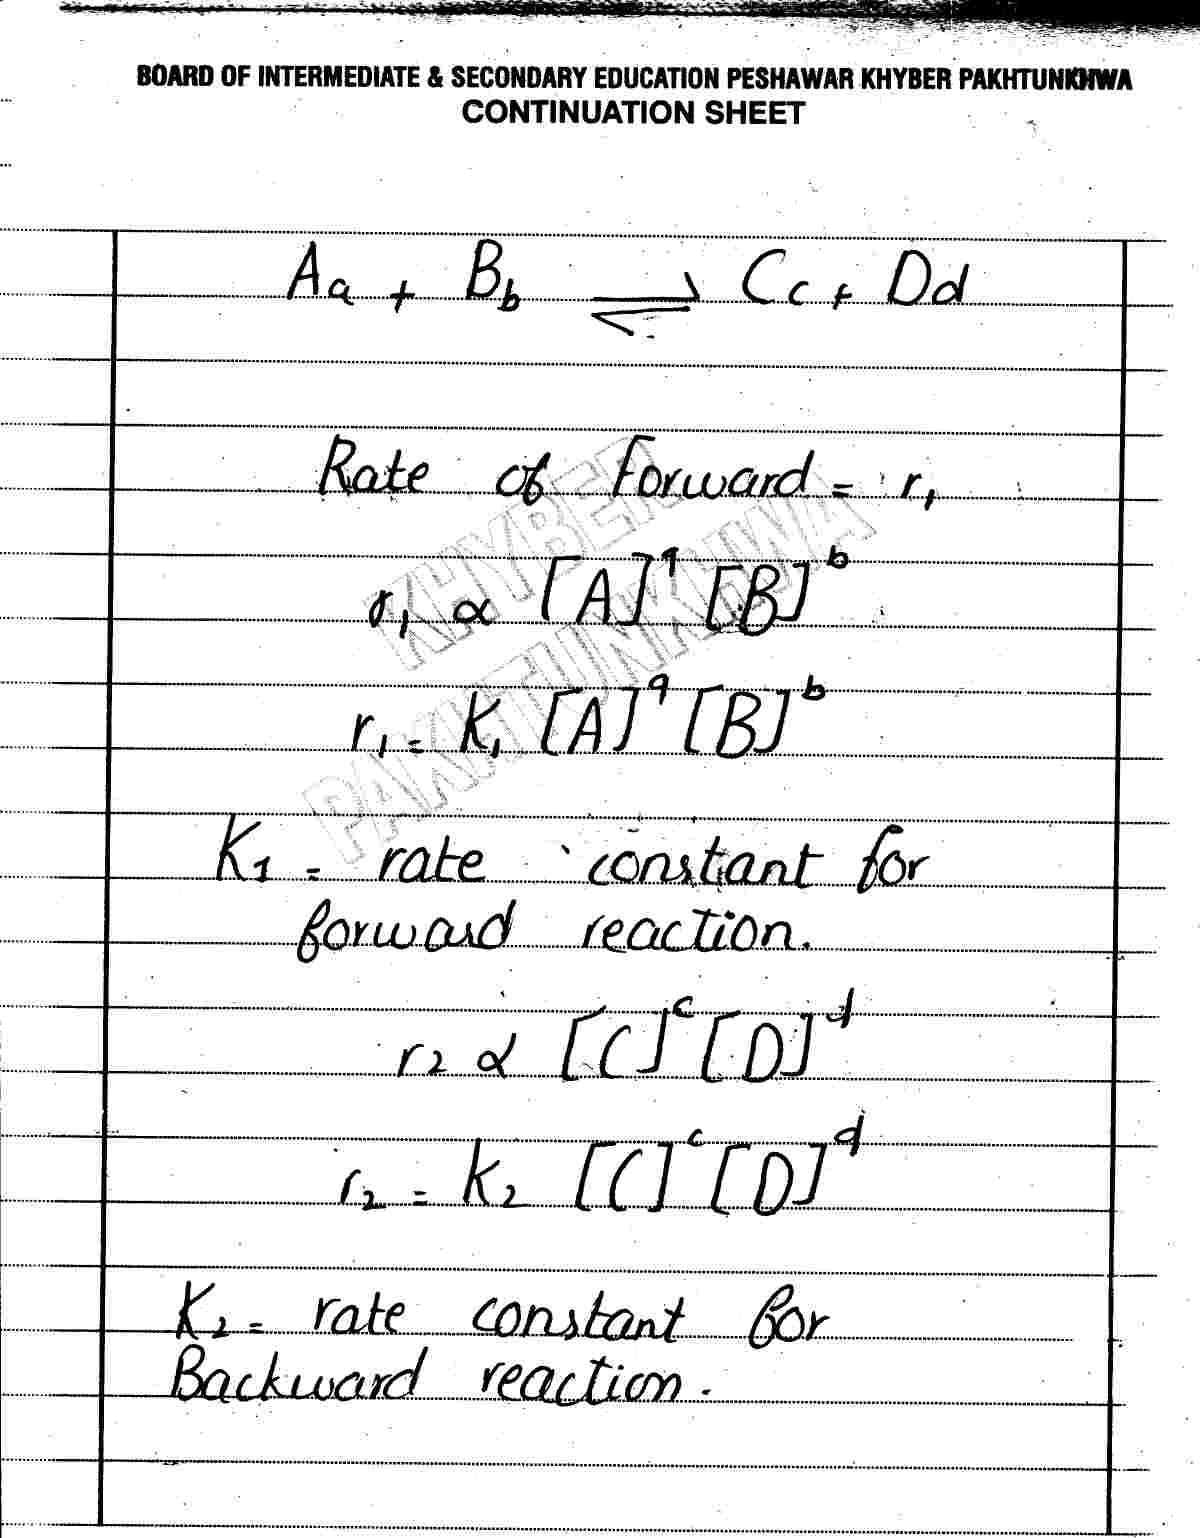 BOARD OF INTERMEDIATE & SECONDARY EDUCATION PESHAWAR KHYBER PAKHTUNKHWA
CONTINUATION SHEET
Aa + Bb ⇌ Cc + Dd
Rate of Forward = r₁
r₁ ∝ [A]ᵃ [B]ᵇ
r₁ = K₁ [A]ᵃ [B]ᵇ
K₁ = rate constant for
forward reaction.
r₂ ∝ [C]ᶜ [D]ᵈ
r₂ = K₂ [C]ᶜ [D]ᵈ
K₂ = rate constant for
Backward reaction.
KHYBER
PAKHTUNKHWA